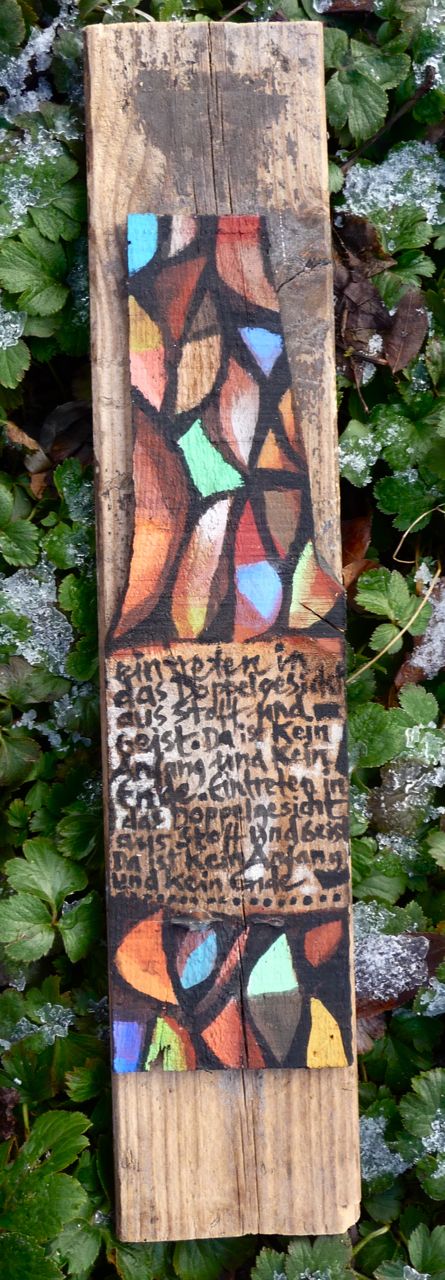 Eintreten in
das Doppelgesicht
aus Stoff und
Geist. Da ist kein
Anfang und kein
Ende. Eintreten in
das Doppelgesicht
aus Stoff und Geist
Da ist kein Anfang
und kein Ende